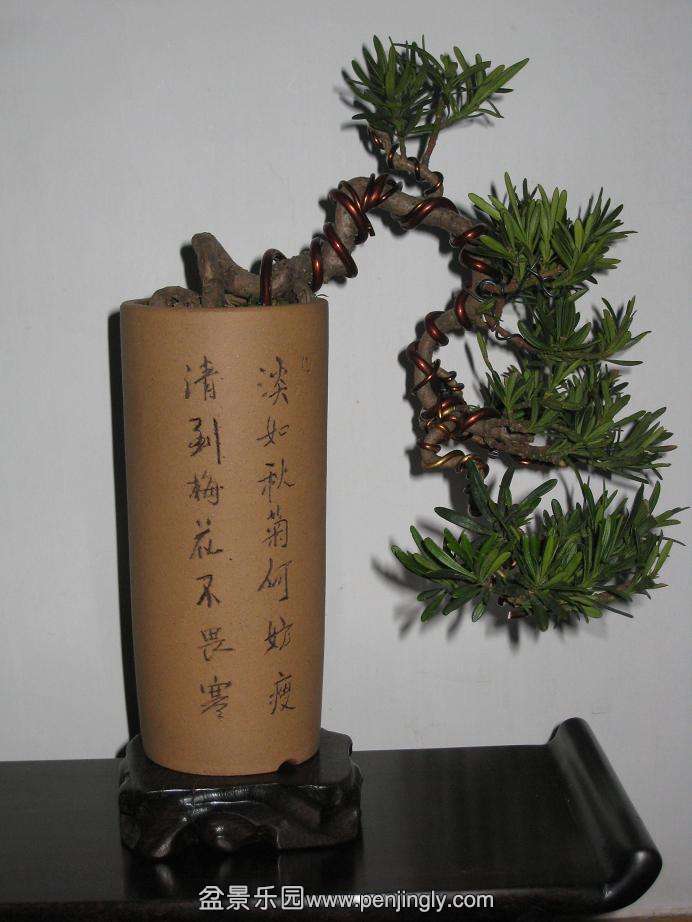 淡如秋菊何妨瘦
清到梅花不畏寒
盆景乐园www.penjingly.com